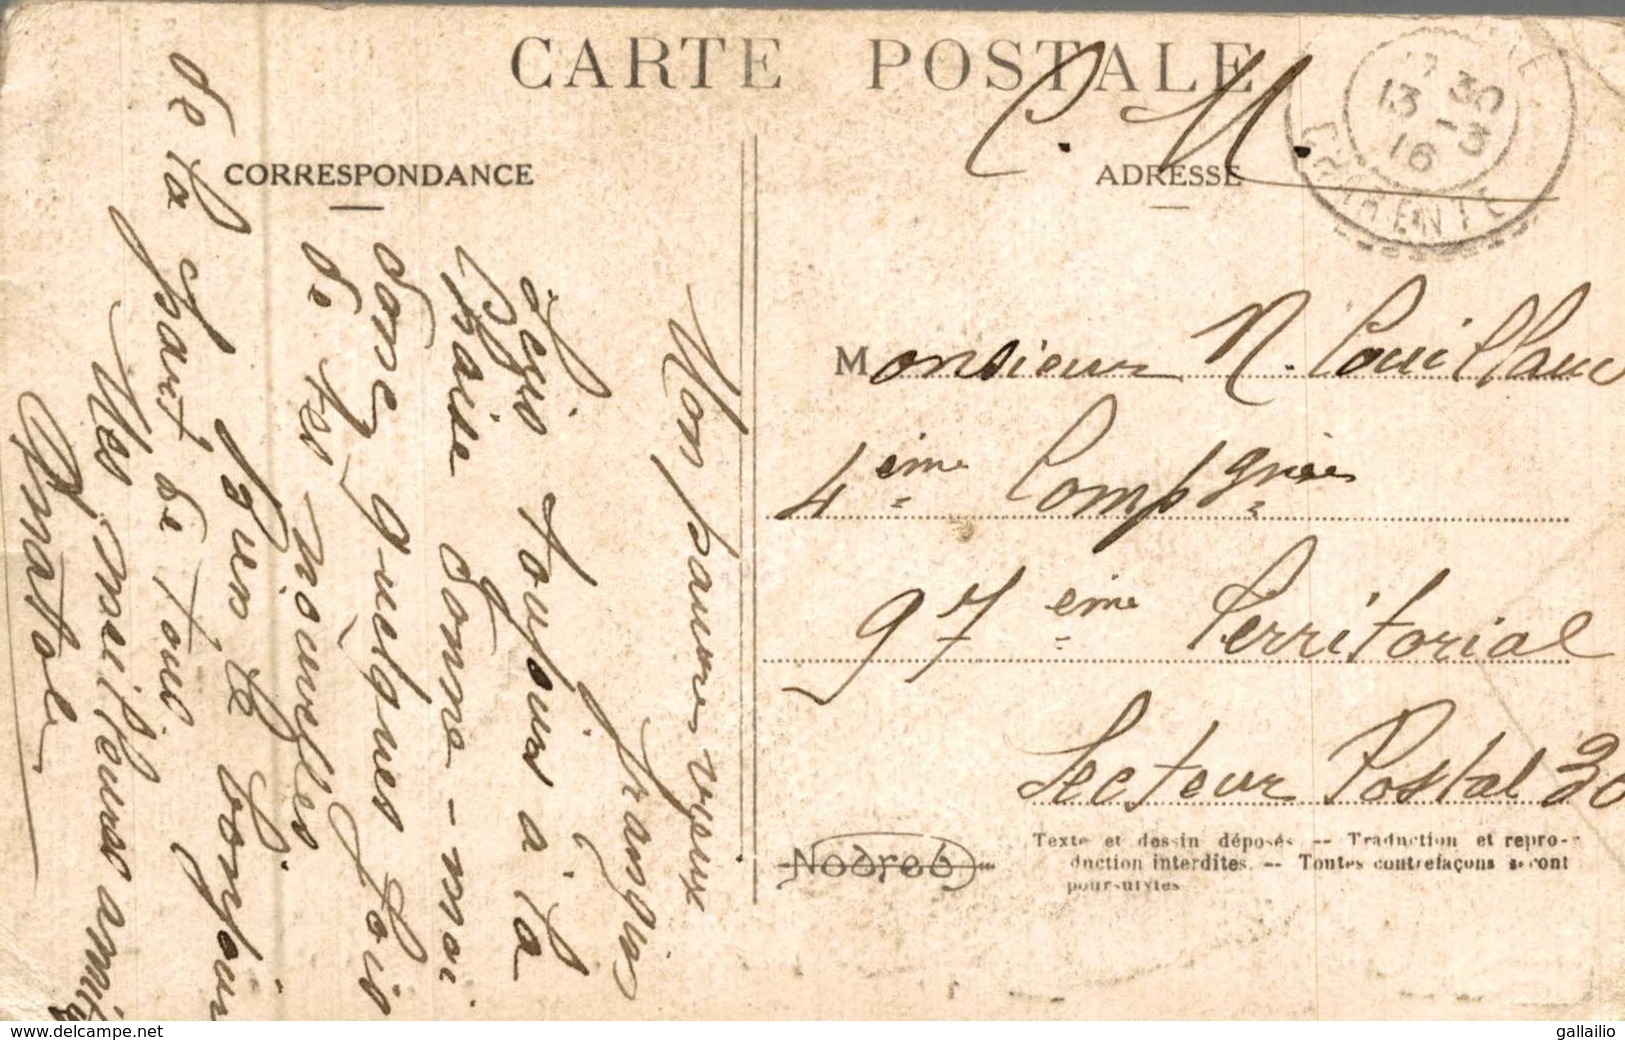 CARTE POSTALE
C. M.
CORRESPONDANCE
ADRESSE
30
13 - 3
16
CHARENTE
Mon pauvre vieux
frangin
toujour a la
Baise donne-moi
donc quelques fois
de tes nouvelles
bien le bonjour
de la part de tous
Mes meilleures
Anatole
Monsieur N. Couillaud
4ème Compgnie
97ème Territorial
Secteur Postal 30
Nodreb
Texte et dessin déposés -- Traduction et repro-
duction interdites. -- Toutes contrefaçons seront
poursuivies
www.delcampe.net
gallailio